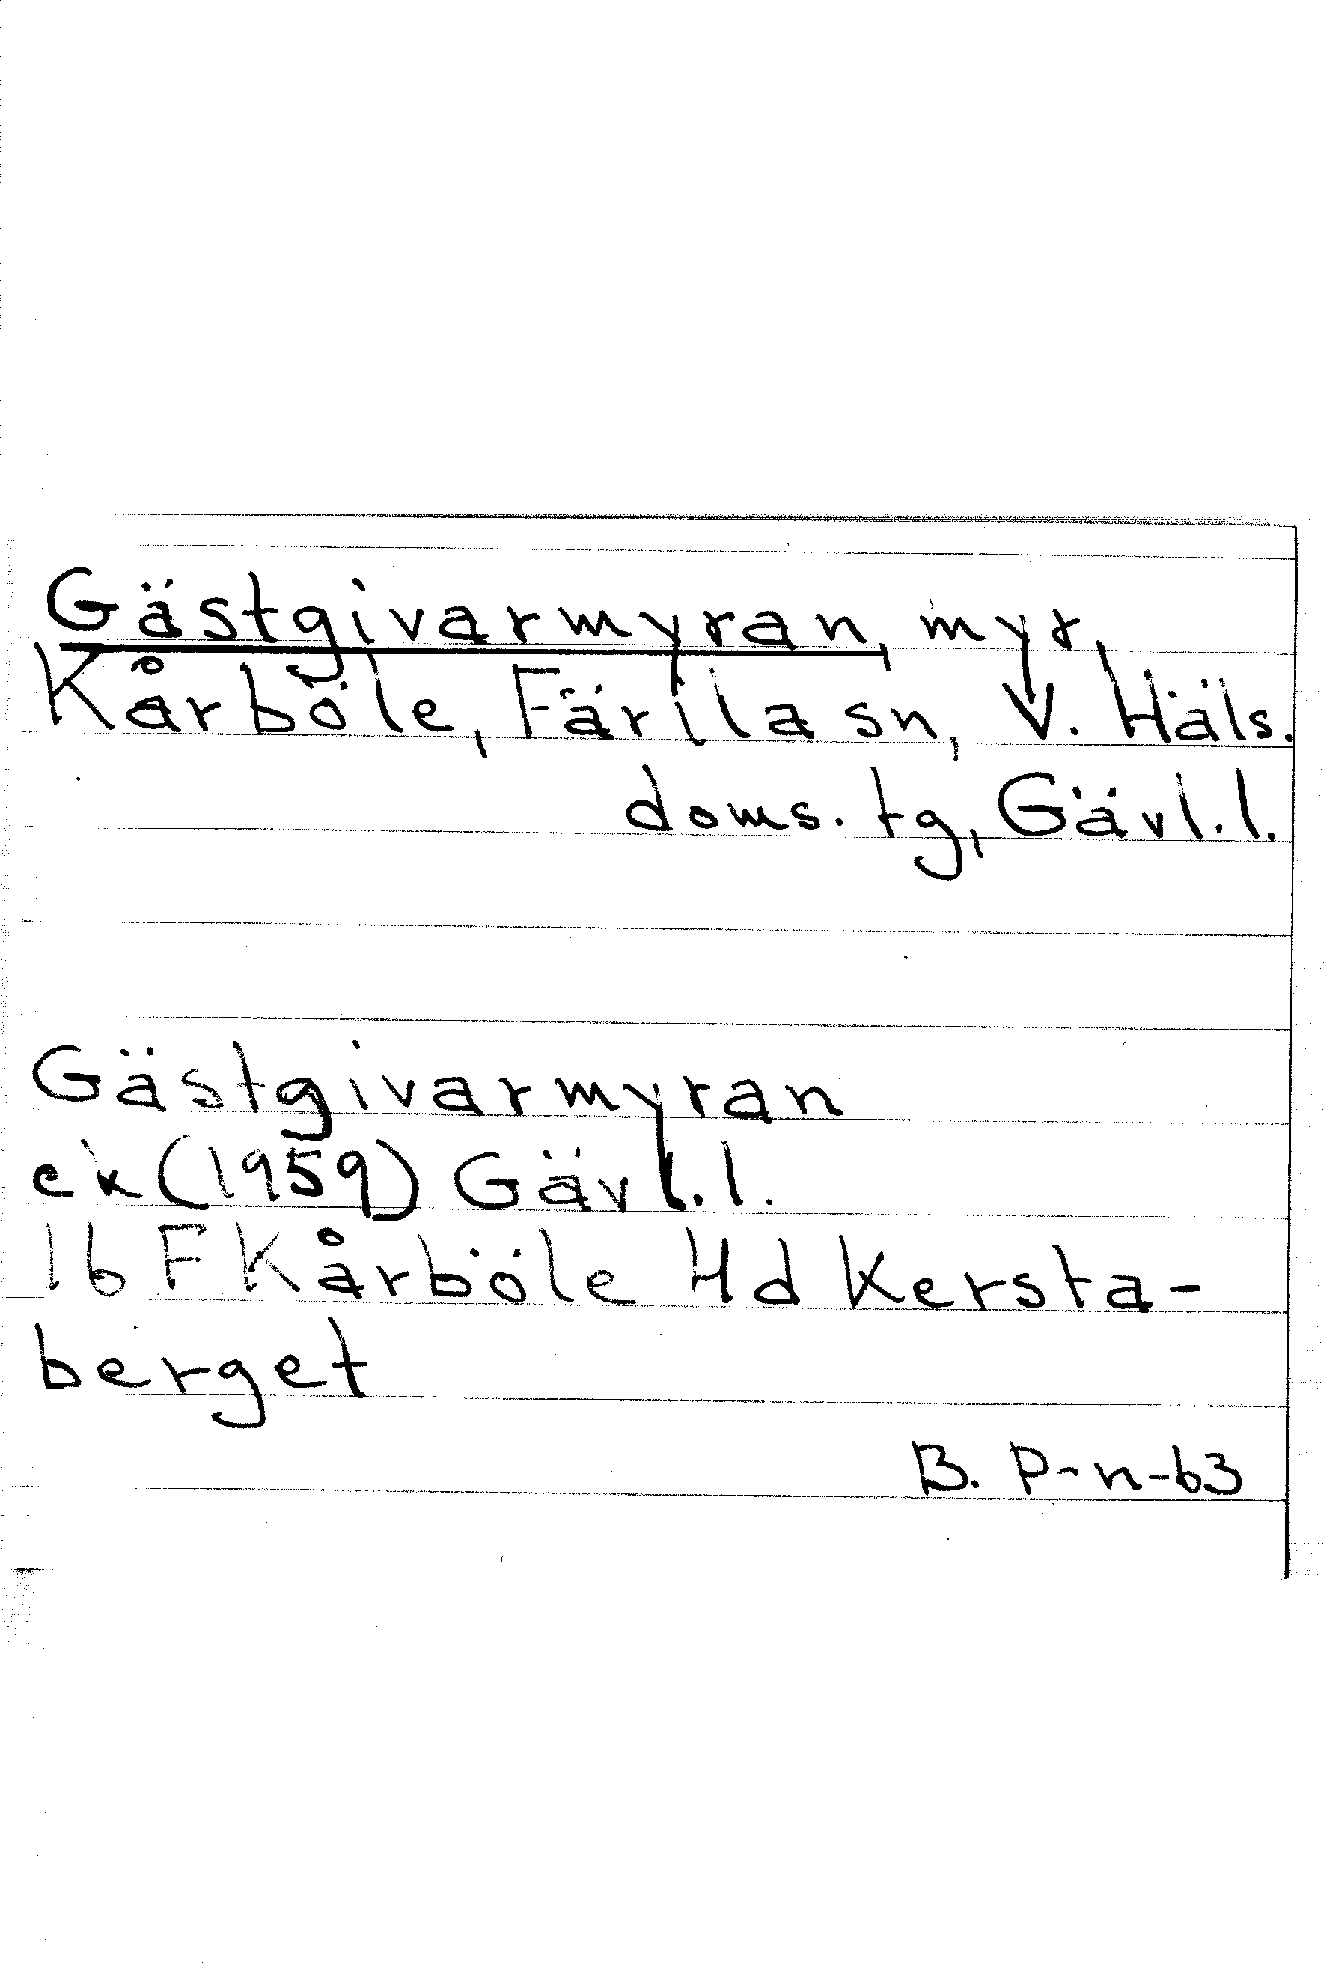 Gästgivarmyran, myr,
Kårböle, Färila sn, V. Häls.
doms. tg, Gävl. l.
Gästgivarmyran
ek (1959) Gävl. l.
16 F Kårböle Hd Kersta-
berget
B. P-n-63